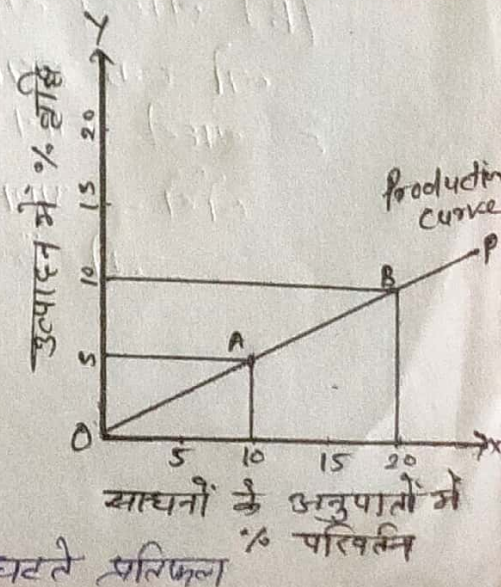 Y
उत्पादन में % वृद्धि
20
15
10
5
O
Production
Curve
P
B
A
5 10 15 20
X
साधनों के अनुपातों में
% परिवर्तन
घटते प्रतिफल